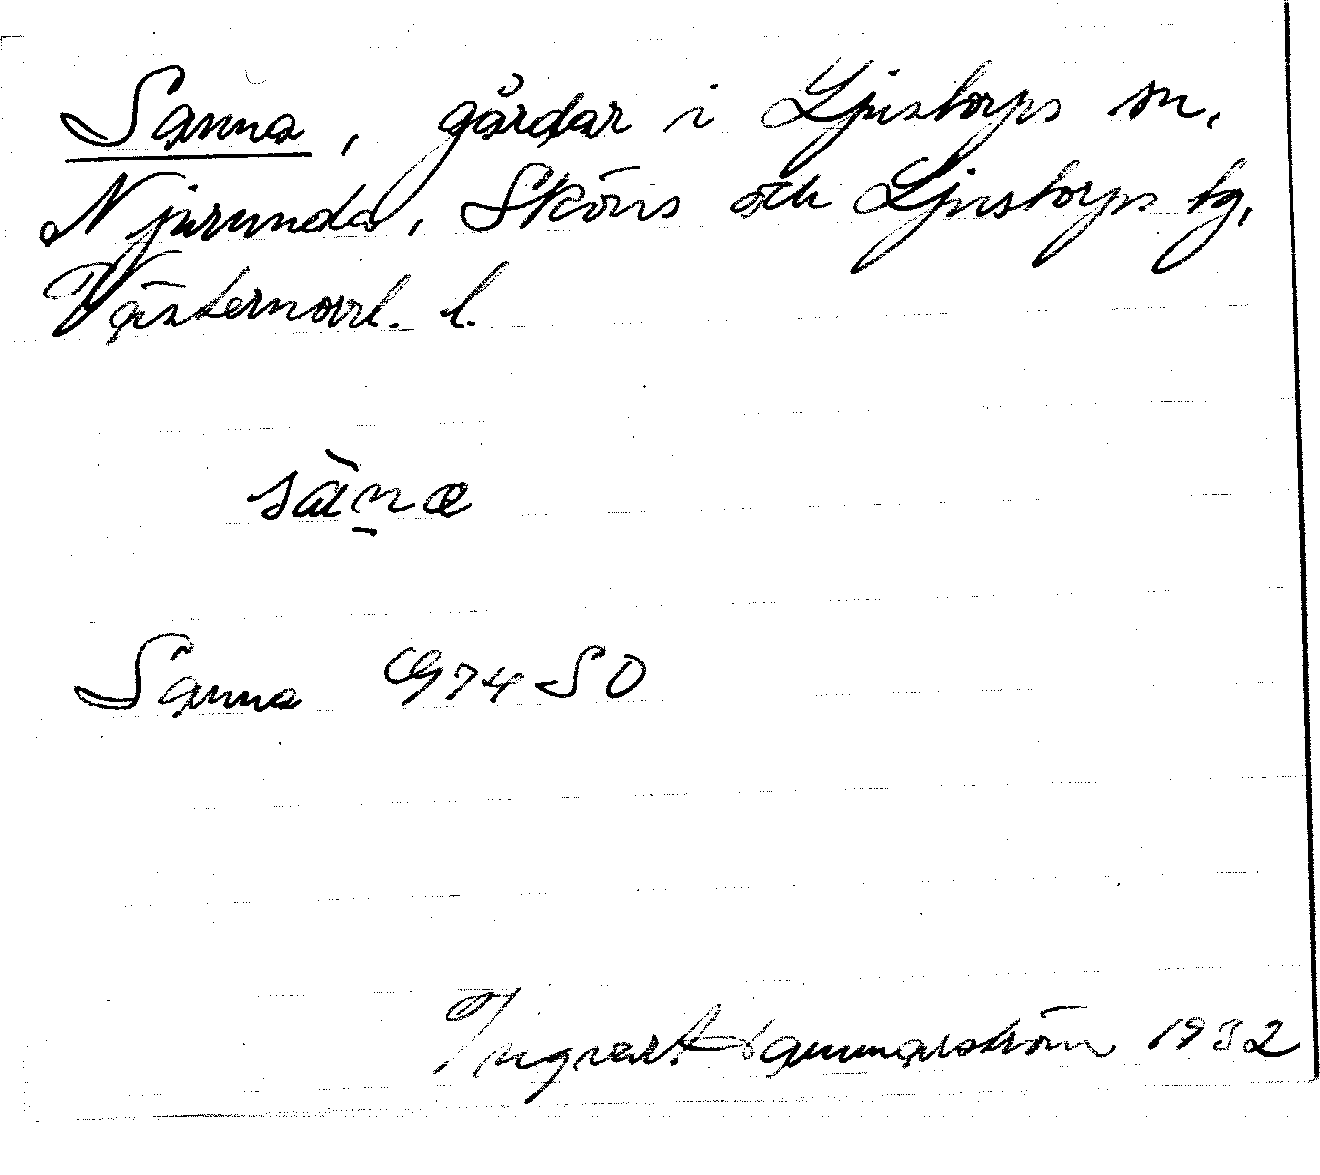 Sanna, gårdar i Ljustorps sn,
Njurunda, Sköns och Ljustorps tg,
Västernorrl. l.
sàn̠a
Sanna 1974 SO
Ingvar Hammarström 1932